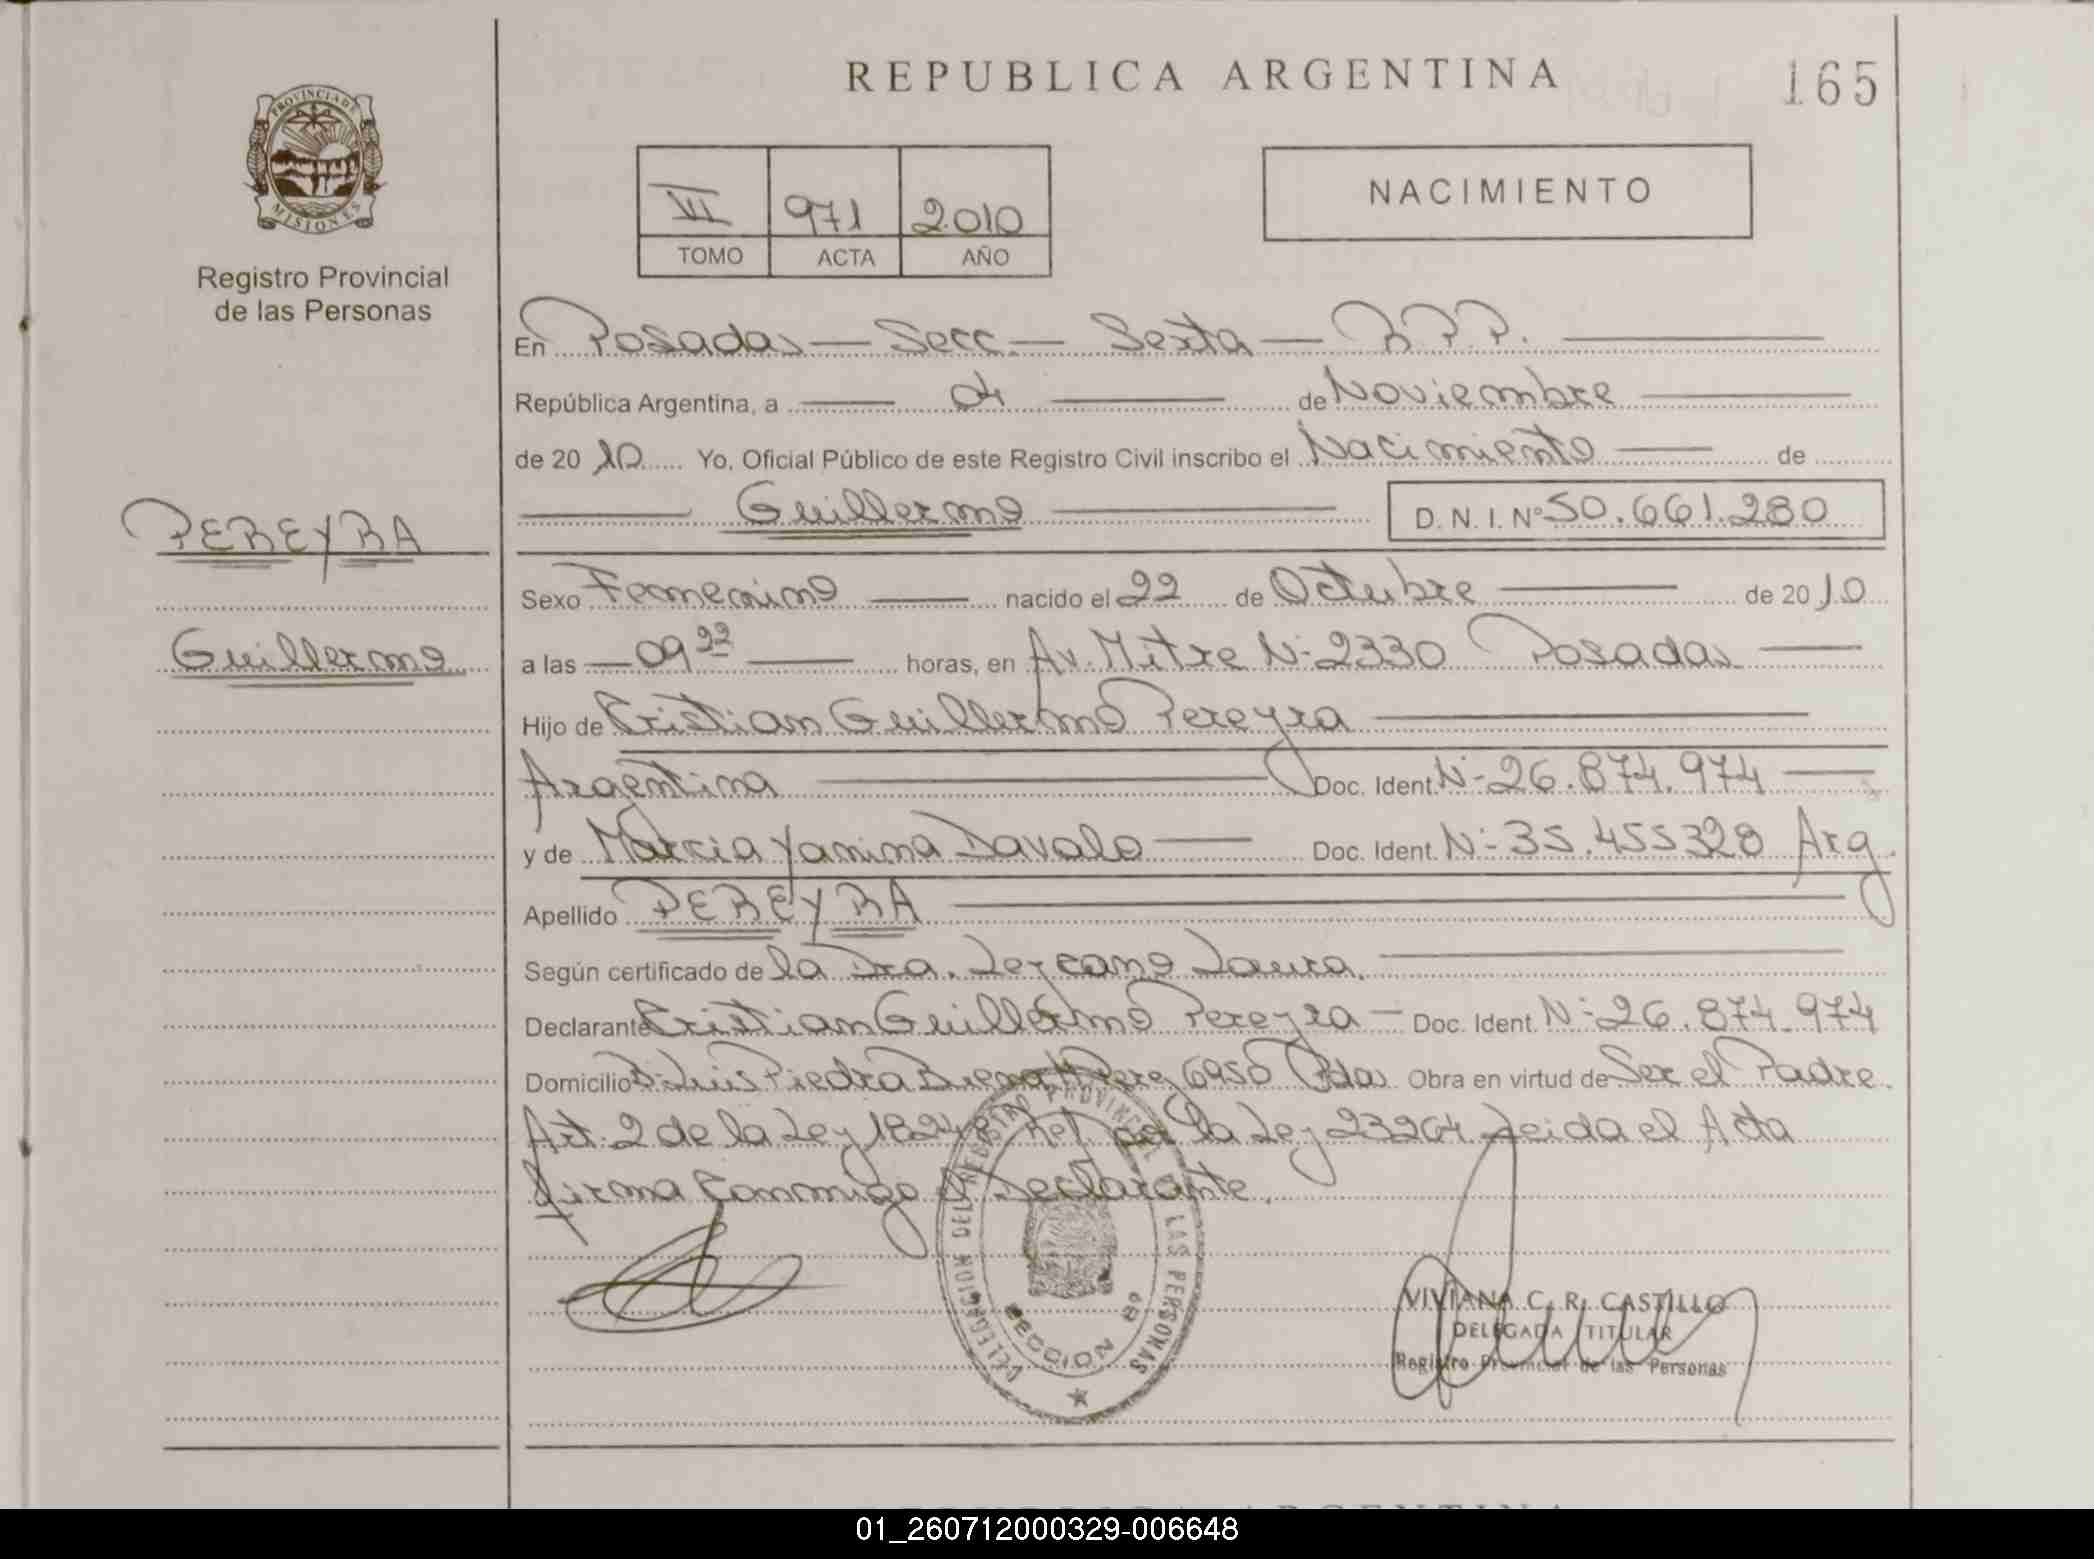 REPUBLICA ARGENTINA
165
PROVINCIA DE
MISIONES
Registro Provincial
de las Personas
VI 971 2.010
TOMO ACTA AÑO
NACIMIENTO
En Posadas — Secc. — Sexta — R.P.P.
República Argentina, a 04 de Noviembre
de 20 10 Yo, Oficial Público de este Registro Civil inscribo el Nacimiento de
Guillermo D.N.I. Nº 50.661.280
PEREYRA
Sexo Femenino nacido el 22 de Octubre de 2010
Guillermo
a las 09 22 horas, en Av. Mitre N- 2330 Posadas
Hijo de Cristian Guillermo Pereyra
Argentina Doc. Ident. N- 26.874.974
y de Marcia Yanina Davalo Doc. Ident. N- 35.455328 Arg.
Apellido PEREYRA
Según certificado de la Dra. Lezcano Laura.
Declarante Cristian Guillermo Pereyra — Doc. Ident. N- 26.874.974
Domicilio Luis Piedra Buena 6950 Pdas Obra en virtud de Ser el Padre.
Art. 2 de la Ley 18248 Ref. por la Ley 23264 Leida el Acta
firma conmigo el Declarante.
DELEGACION DEL REGISTRO PROVINCIAL DE LAS PERSONAS
SECCION 6º
VIVIANA C. R. CASTILLO
DELEGADA TITULAR
Registro Provincial de las Personas
01_260712000329-006648